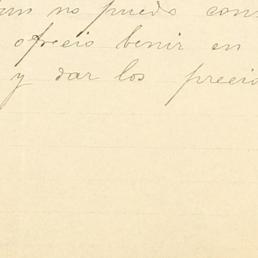 no puedo con
ofreció benir en
y dar los precio